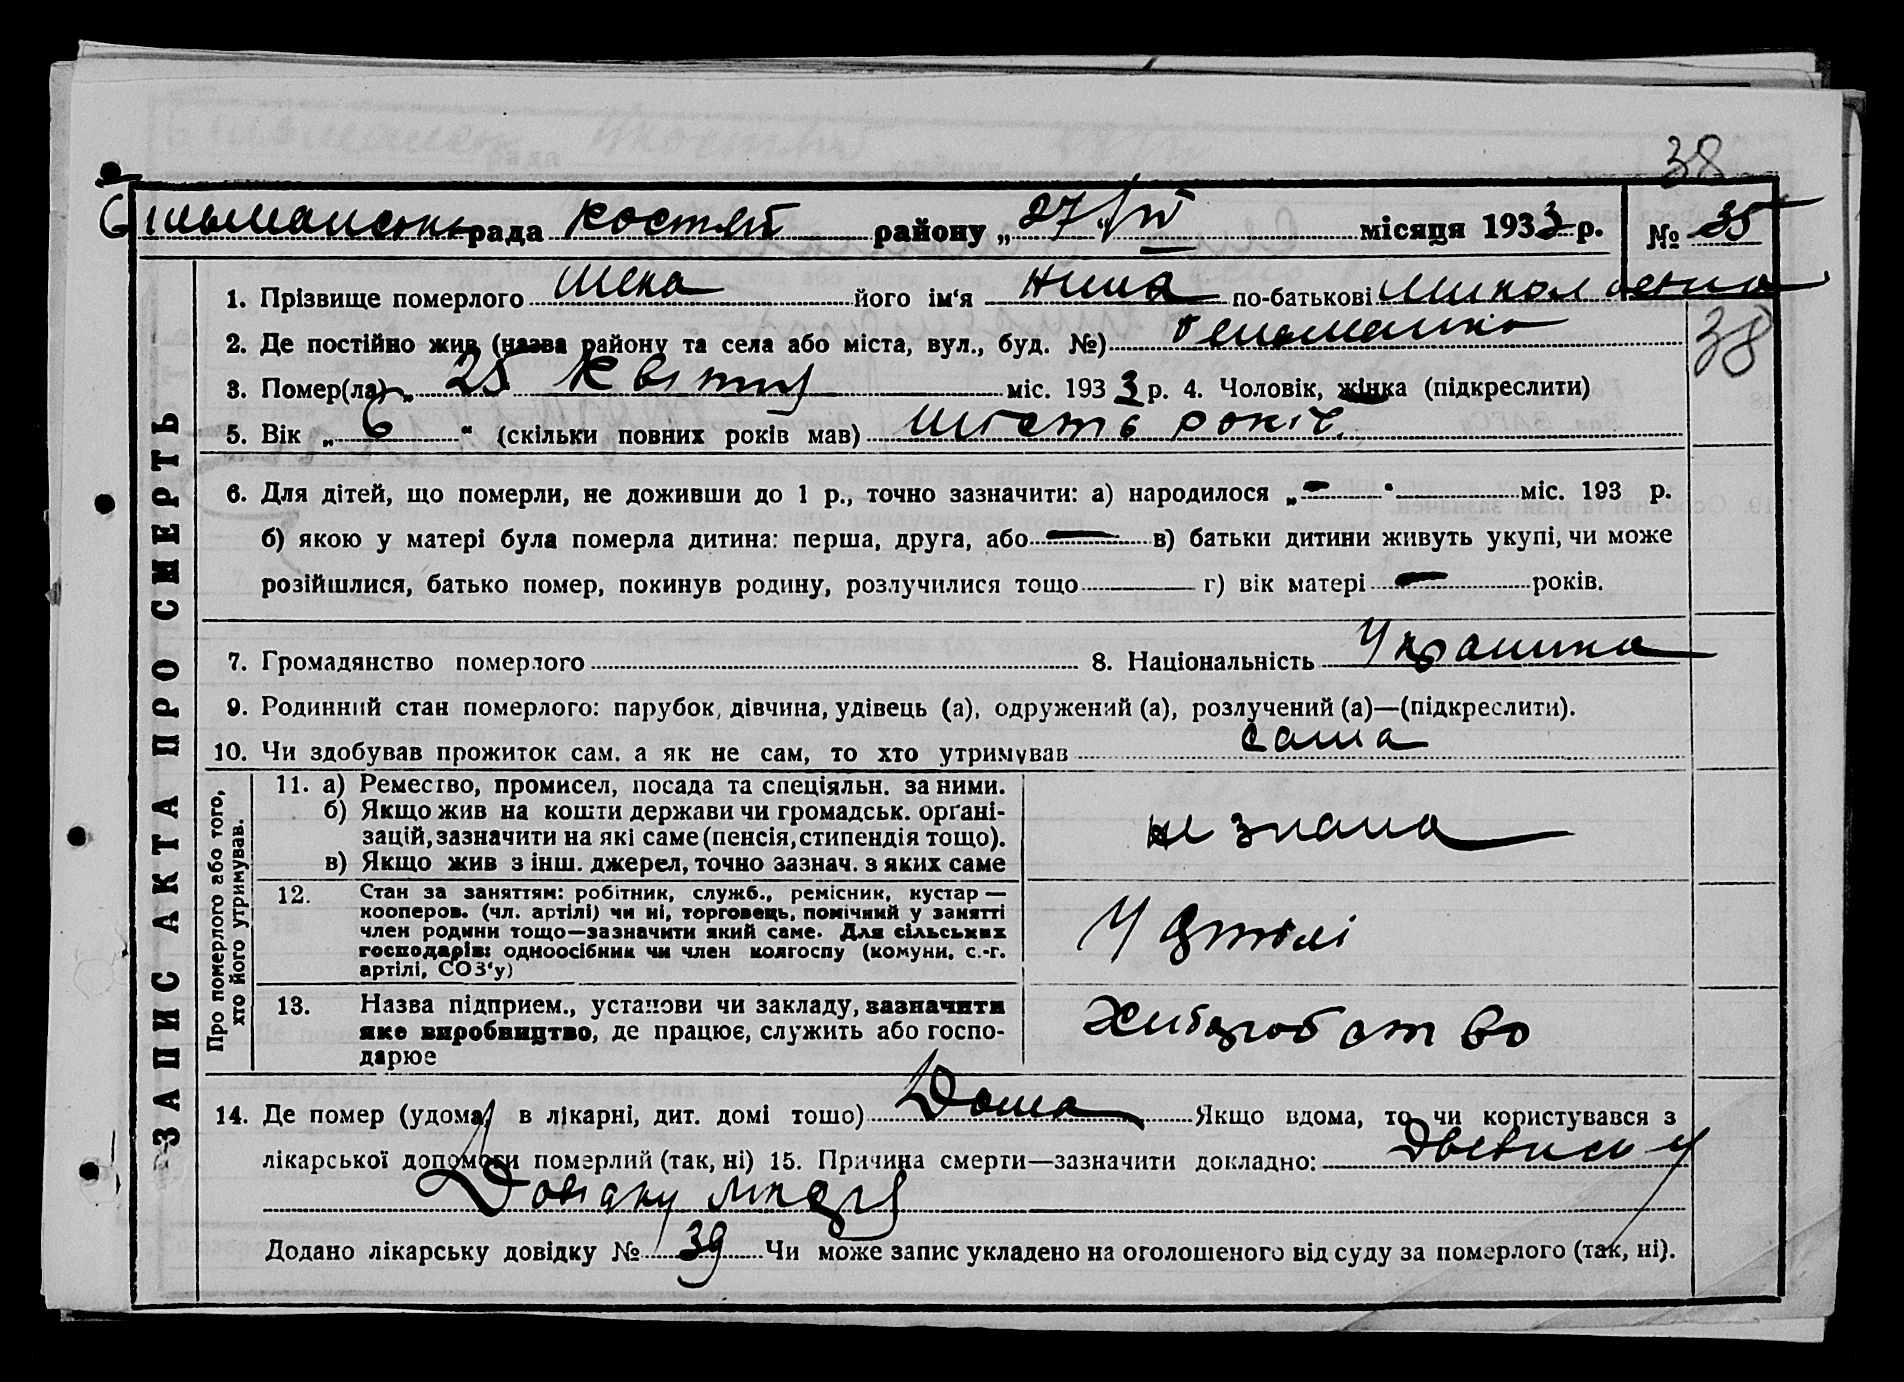 38
рада Костян району „ 27 “ IV місяця 1933 р. № 35
ЗАПИС АКТА ПРО СМЕРТЬ
1. Прізвище померлого Шека його ім‘я Нина по-батькові Миколаевна
38
2. Де постійно жив (назва району та села або міста, вул., буд. №)
3. Помер(ла) „ 25 Квітня міс. 1933 р. 4. Чоловік, жінка (підкреслити)
5. Вік „ 6 “ (скільки повних років мав) Шість років
6. Для дітей, що померли, не доживши до 1 р., точно зазначити: а) народилося „ — “ міс. 193 р.
б) якою у матері була померла дитина: перша, друга, або — в) батьки дитини живуть укупі, чи може
розійшлися, батько помер, покинув родину, розлучилися тощо г) вік матері — років.
7. Громадянство померлого 8. Національність Украинка
9. Родинний стан померлого: парубок, дівчина, удівець (а), одружений (а), розлучений (а)—(підкреслити).
10. Чи здобував прожиток сам. а як не сам, то хто утримував сама
Про померлого або того, хто його утримував.
11. а) Ремество, промисел, посада та спеціяльн. за ними.
б) Якщо жив на кошти держави чи громадськ. орґані-
зацій, зазначити на які саме (пенсія, стипендія тощо).
в) Якщо жив з інш. джерел, точно зазнач. з яких саме
не знала
12. Стан за заняттям: робітник, служб., ремісник, кустар —
кооперов. (чл. артілі) чи ні, торговець, помічний у занятті
член родини тощо—зазначити який саме. Для сільських
господарів: одноосібник чи член колгоспу (комуни, с.-г.
артілі, СОЗ‘у)
У артілі
13. Назва підприєм., установи чи закладу, зазначити
яке виробництво, де працює, служить або госпо-
дарює
Хлібаробство
14. Де помер (удома, в лікарні, дит. домі тощо) Дома Якщо вдома, то чи користувався з
лікарської допомоги померлий (так, ні) 15. Причина смерти—зазначити докладно:
Довідку
Додано лікарську довідку № 39 Чи може запис укладено на оголошеного від суду за померлого (так, ні).